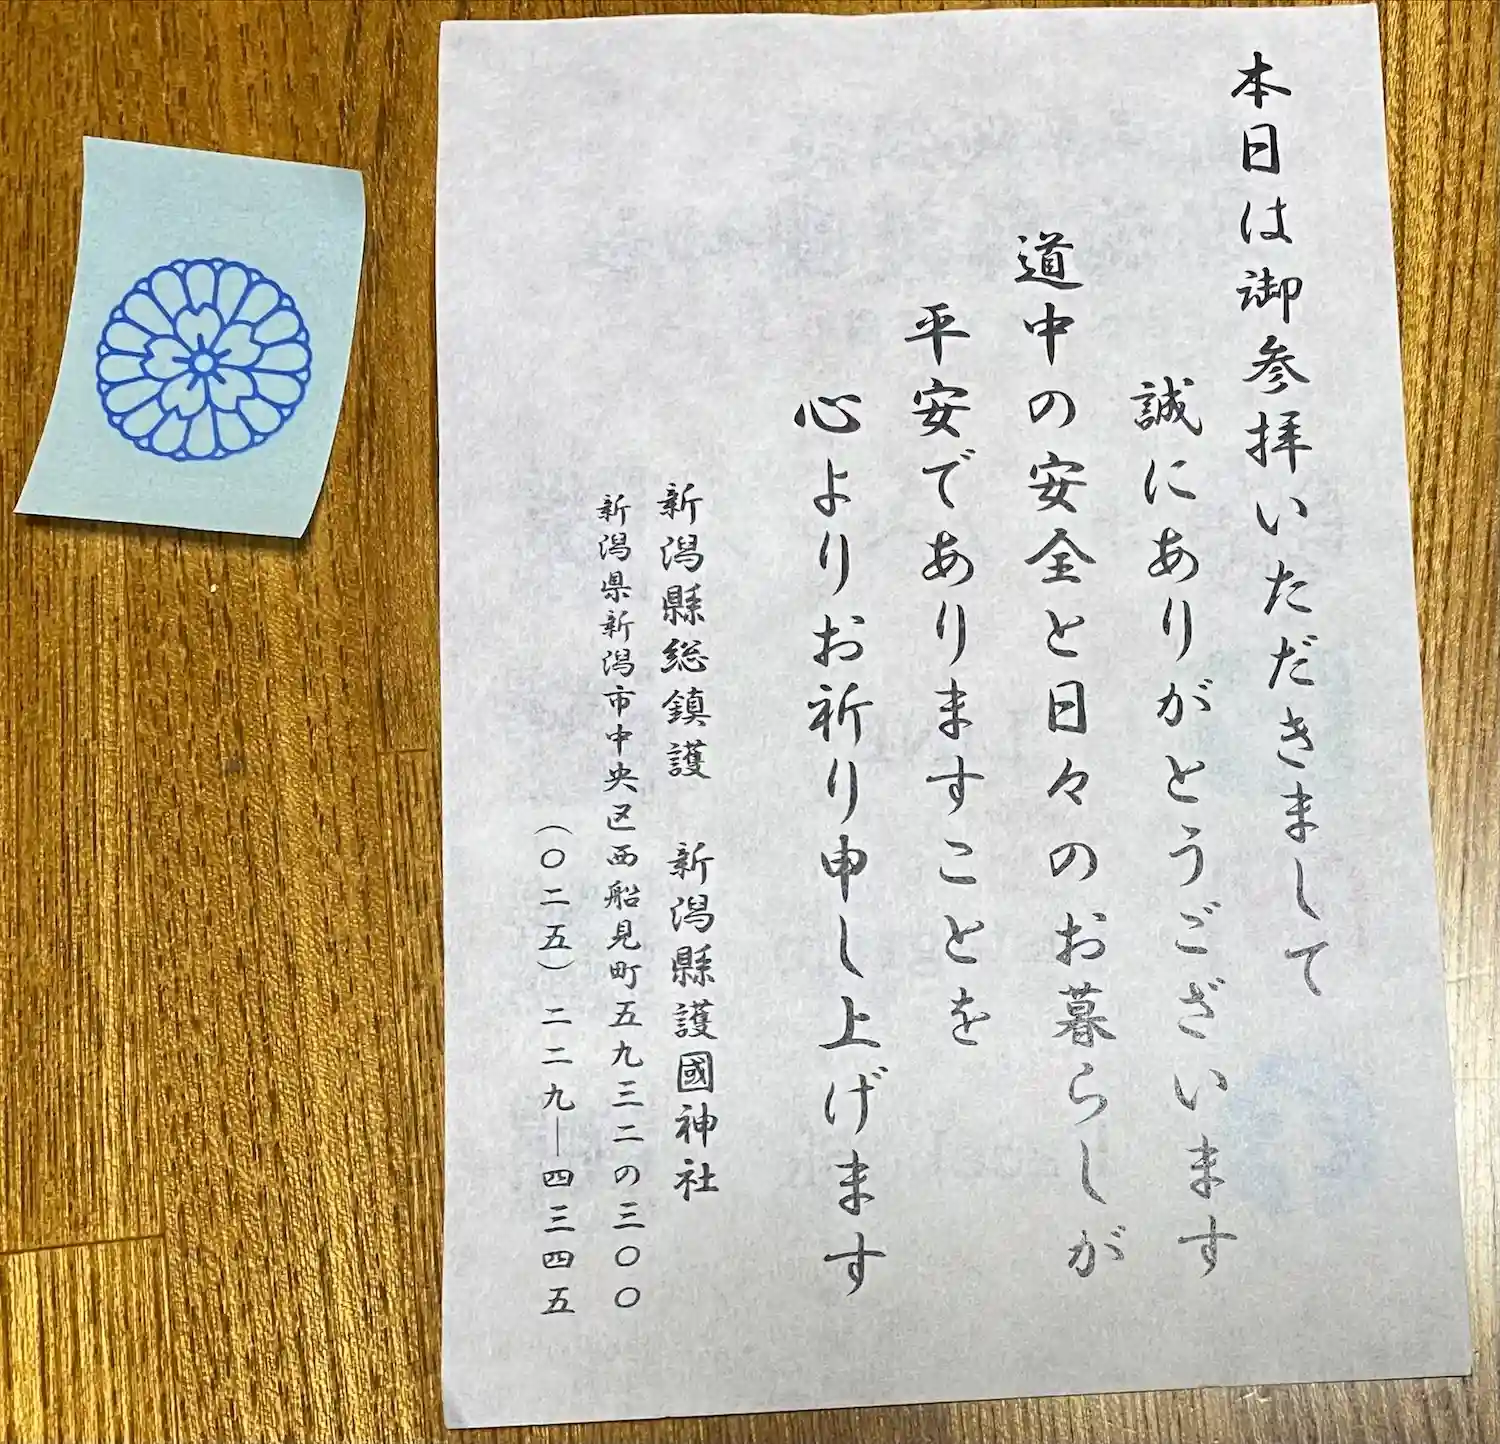 本日は御参拝いただきまして
誠にありがとうございます
道中の安全と日々のお暮らしが
平安でありますことを
心よりお祈り申し上げます
新潟縣総鎮護　新潟縣護國神社
新潟県新潟市中央区西船見町五九三二の三〇〇
（〇二五）二二九―四三四五